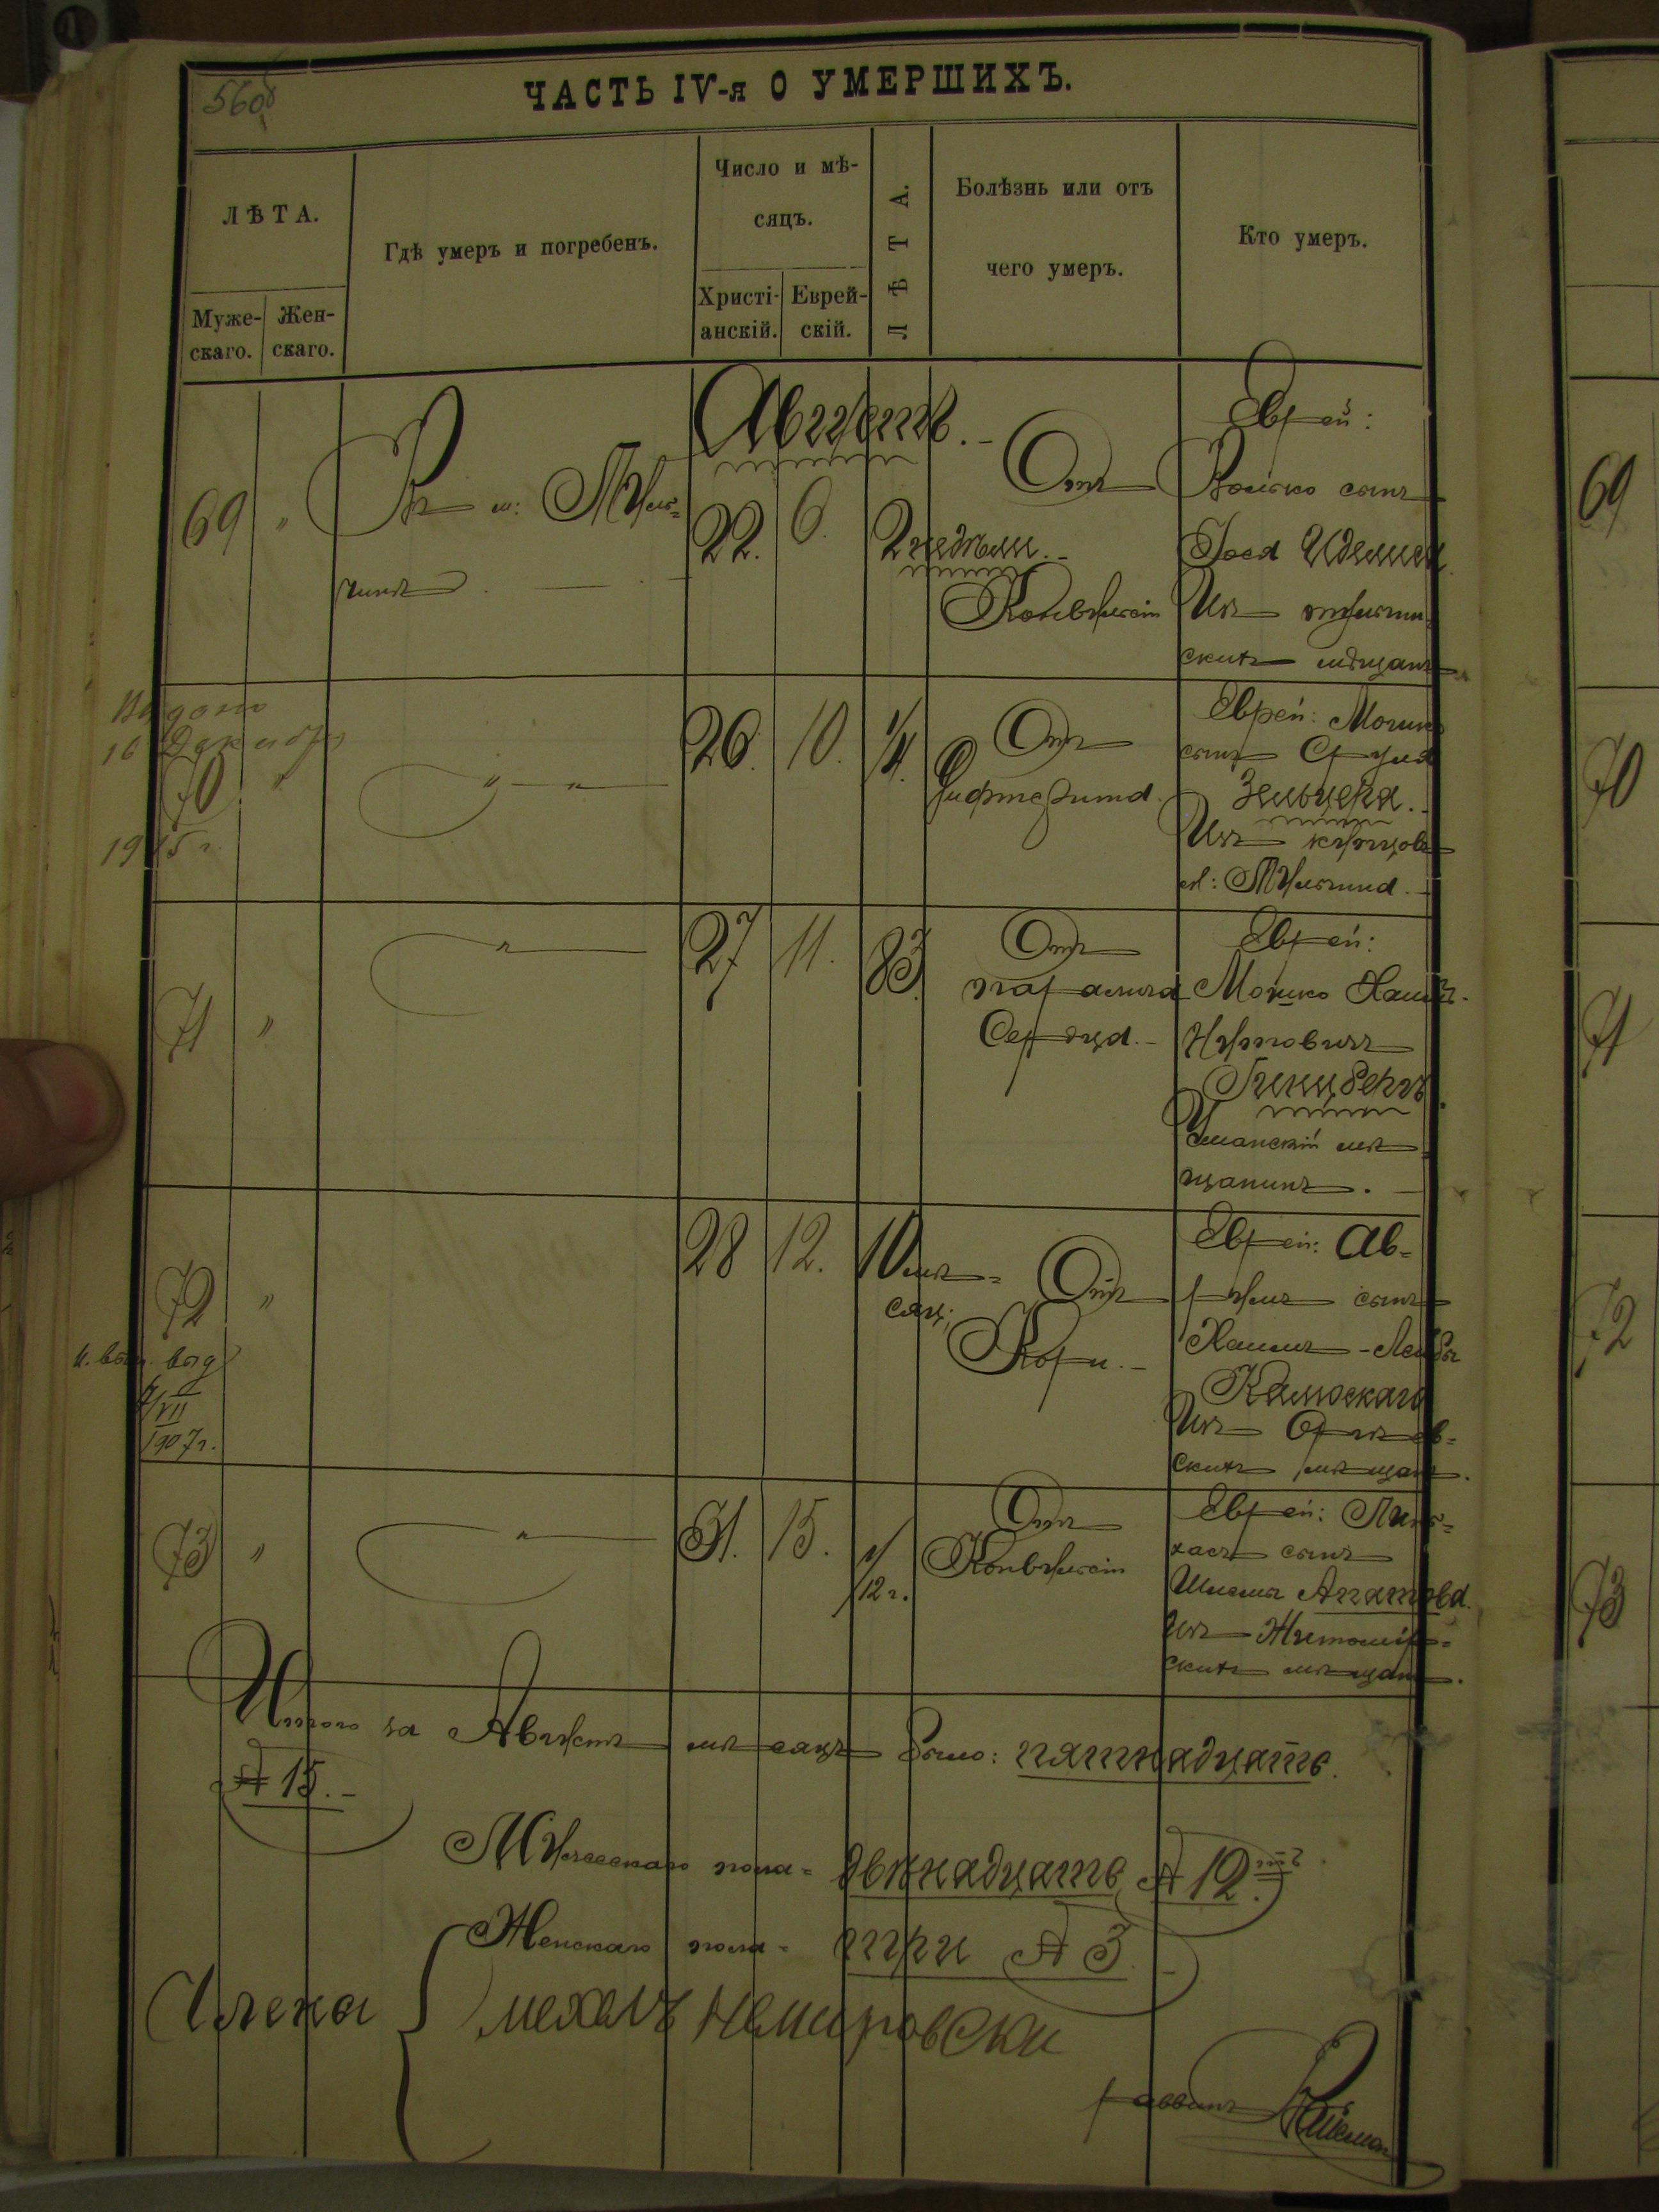 560
ЧАСТЬ IV-я О УМЕРШИХЪ.
ЛѢТА.
Муже-
скаго.
Жен-
скаго.
Гдѣ умеръ и погребенъ.
Число и мѣ-
сяцъ.
Христі-
анскій.
Еврей-
скій.
ЛѢТА.
Болѣзнь или отъ
чего умеръ.
Кто умеръ.
Августъ.
69 " Въ м: Туль-
чинѣ
22. 6. 2 недѣли.
Отъ
Конвульсій
Еврей:
Волько сынъ
Іося
Изъ тульчин-
скихъ мѣщанъ
Выдано
16 Декабря
1915 г.
70 " " 26. 10. 1/4.
Отъ
Дифтерита.
Еврей: Мошко
сынъ Сруля
Зельцера.
Изъ купцовъ
м: Тульчина.
71 " " 27 11. 83.
Отъ
паралича
Сердца.
Еврей:
Мошко Хаимъ-
Нутовичъ
Гинцбергъ.
Уманскій мѣ
щанинъ.
72 " 28 12. 10 мѣ-
сяц:
Отъ
Кори.
Еврей: Ав-
румъ сынъ
Хаимъ-Лейбы
Каменскаго
Изъ
скихъ мѣщанъ.
выд
VII
1907 г.
73 " " 31. 15. 1/12 г.
Отъ
Конвульсій
Еврей: Пин-
хасъ сынъ
Шлемы Агатова.
Изъ Житомир-
скихъ мѣщанъ.
Итого за Августъ мѣсяцъ было: пятнадцать.
№ 15.
Мужескаго пола - двѣнадцать № 12.
Женскаго пола - три № 3.
Члены { Мехель Немировски
раввинъ
69
70
71
72
73